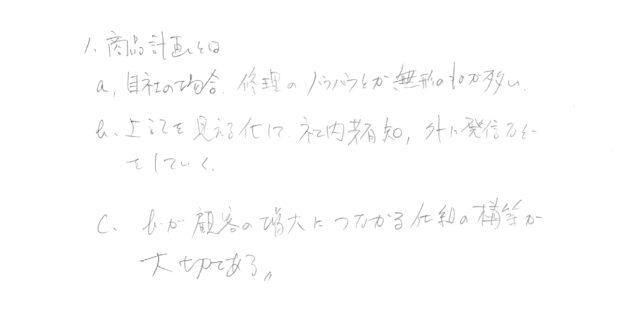 1. 商品計画とは
a, 自社の場合. 修理のノウハウとか無形のものが多い.
b. 上記を見える化して. 社内周知, 外に発信など
をしていく.
c. bが顧客の増大につながる仕組の構築が
大切である。